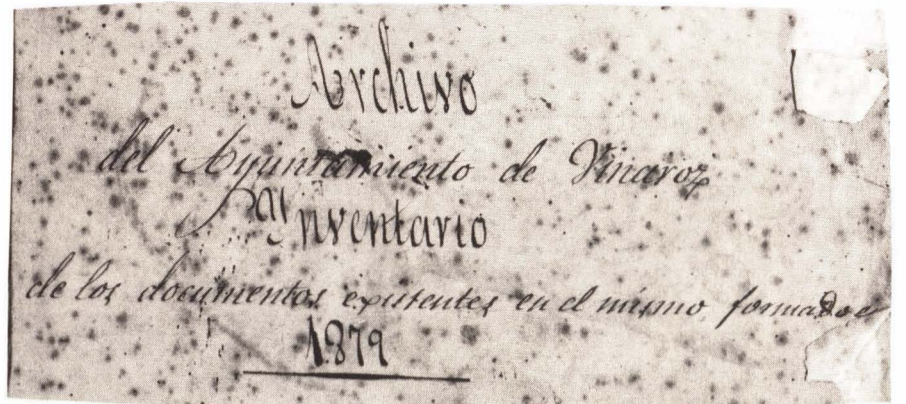 Archivo
del Ayuntamiento de Vinaroz
Inventario
de los documentos existentes en el mismo, formado e
1879